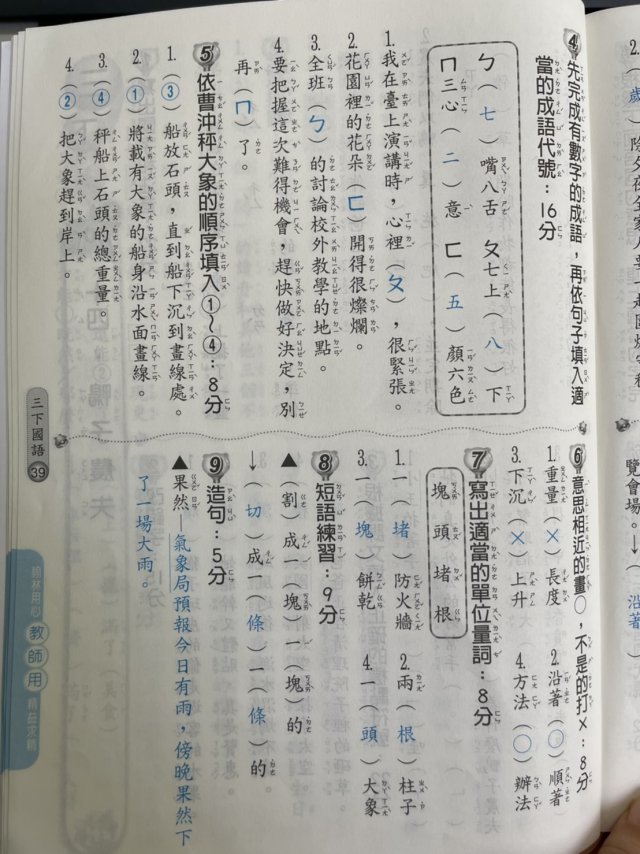 4 先完成有數字的成語，再依句子填入適
當的成語代號：16分
ㄅ（七）嘴八舌 ㄆ七上（八）下
ㄇ三心（二）意 ㄈ（五）顏六色
1. 我在臺上演講時，心裡（ㄆ），很緊張。
2. 花園裡的花朵（ㄈ）開得很燦爛。
3. 全班（ㄅ）的討論校外教學的地點。
4. 要把握這次難得機會，趕快做好決定，別
再（ㄇ）了。
5 依曹沖秤大象的順序填入①～④：8分
1. （③）船放石頭，直到船下沉到畫線處。
2. （①）將載有大象的船身沿水面畫線。
3. （④）秤船上石頭的總重量。
4. （②）把大象趕到岸上。
6 意思相近的畫○，不是的打×：8分
1. 重量（×）長度 2. 沿著（○）順著
3. 下沉（×）上升 4. 方法（○）辦法
7 寫出適當的單位量詞：8分
塊 頭 堵 根
1. 一（堵）防火牆 2. 兩（根）柱子
3. 一（塊）餅乾 4. 一（頭）大象
8 短語練習：9分
▲（割）成一（塊）一（塊）的
↓（切）成一（條）一（條）的
9 造句：5分
▲果然—氣象局預報今日有雨，傍晚果然下
了一場大雨。
三下國語 39
翰林用心 教師用 精益求精